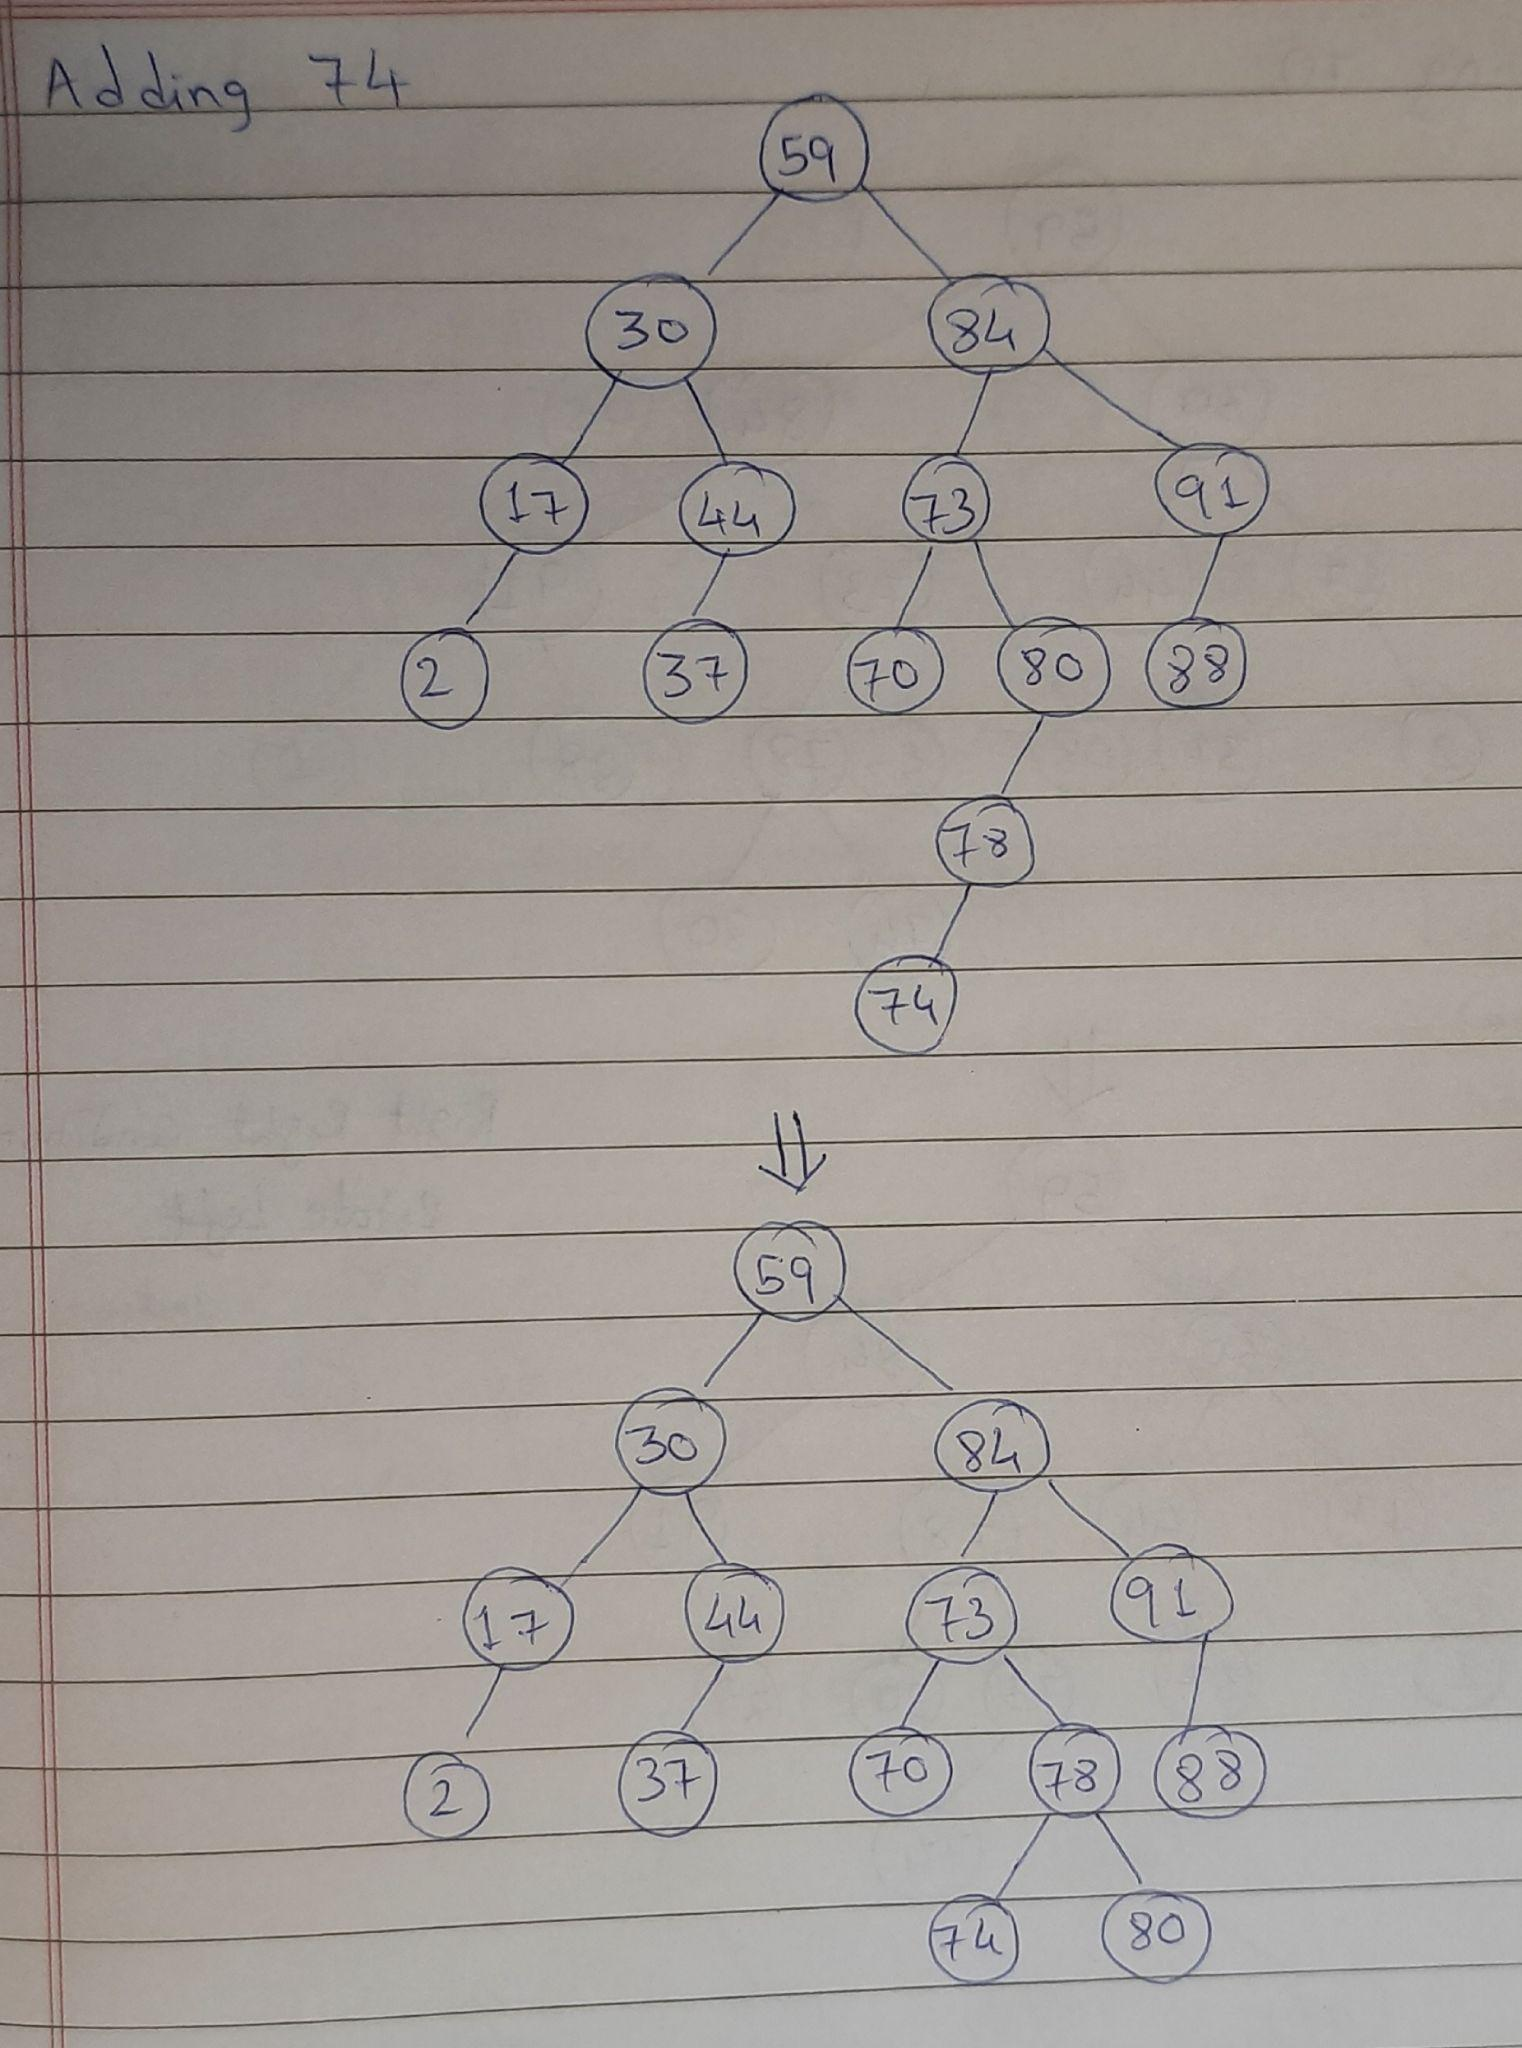 Adding 74
59
30 84
17 44 73 91
2 37 70 80 88
78
74
59
30 84
17 44 73 91
2 37 70 78 88
74 80